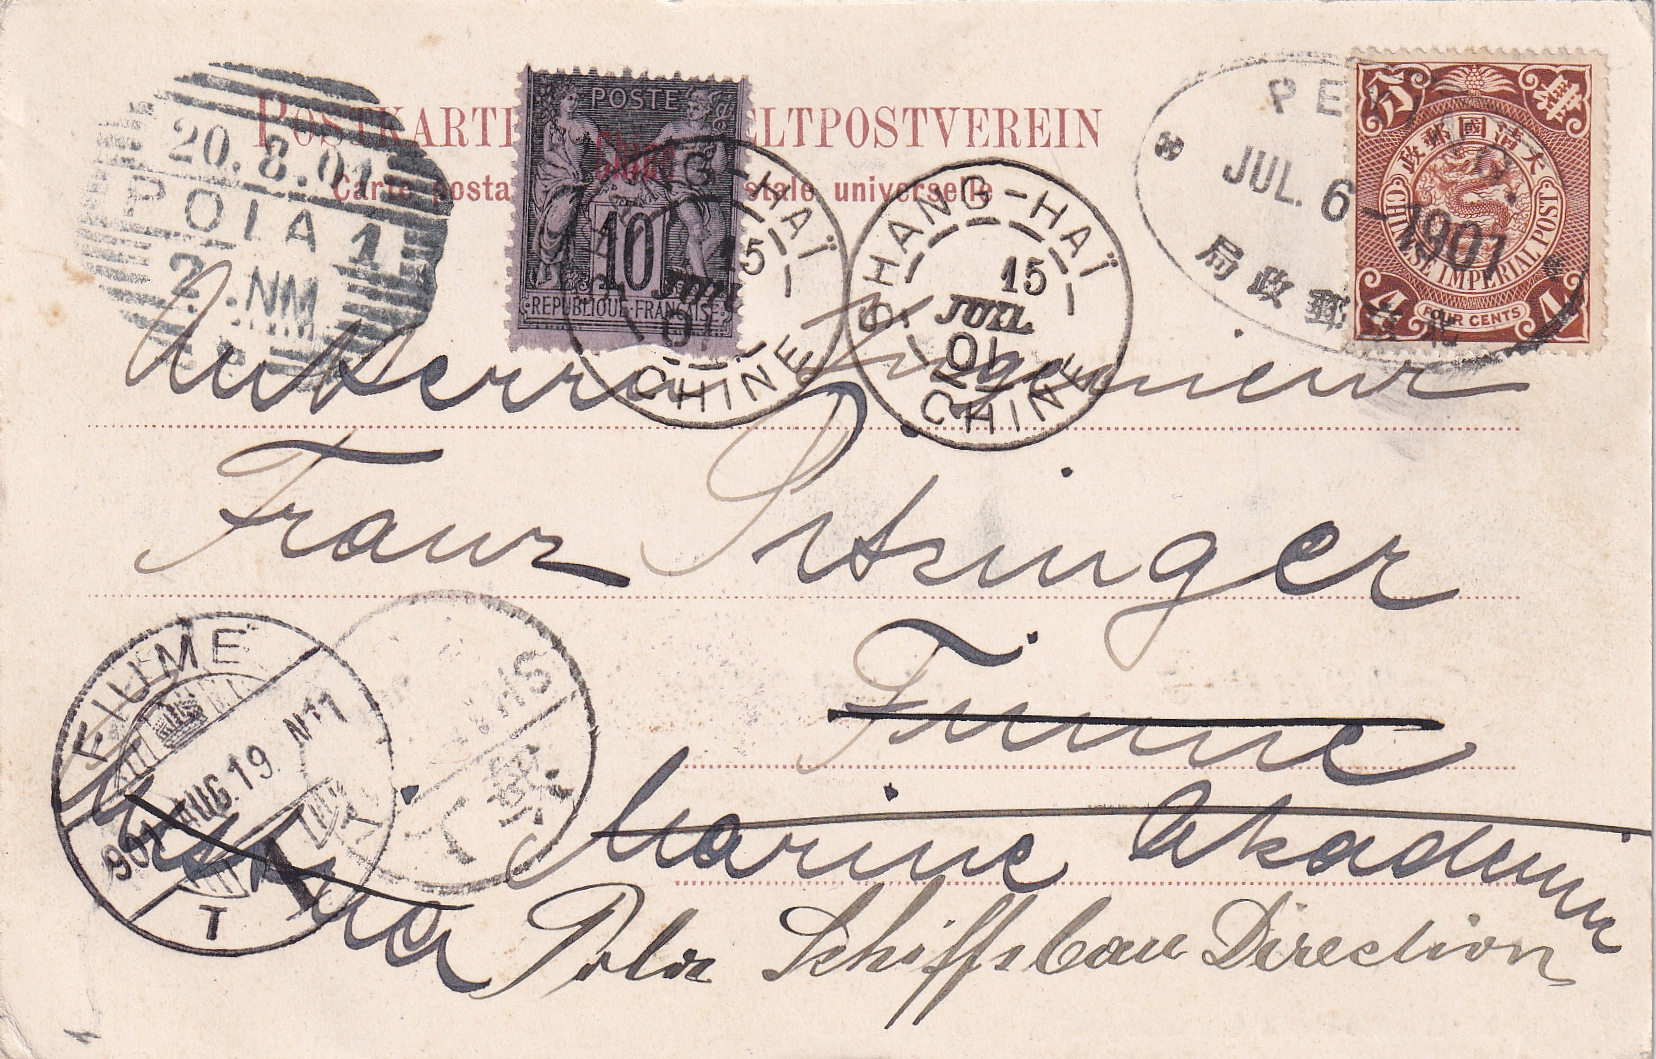 POSTKARTE WELTPOSTVEREIN
Carte postale universelle
20.8.01
POLA 1
2.NM
POSTE
Chine
10
REPUBLIQUE FRANÇAISE
SHANG-HAÏ
15
JUIL
01
CHINE
SHANG-HAÏ
15
JUIL
01
CHINE
PEKIN.
JUL. 6-1901
局政郵京北
政郵國清大
CHINESE IMPERIAL POST
4
4
FOUR CENTS
An Herrn Ingenieur
Franz Pitzinger
Fiume
Marine Akademie
Austria
Pola Schiffsbau Direction
FIUME
901 AUG.19. N11
T
SHA